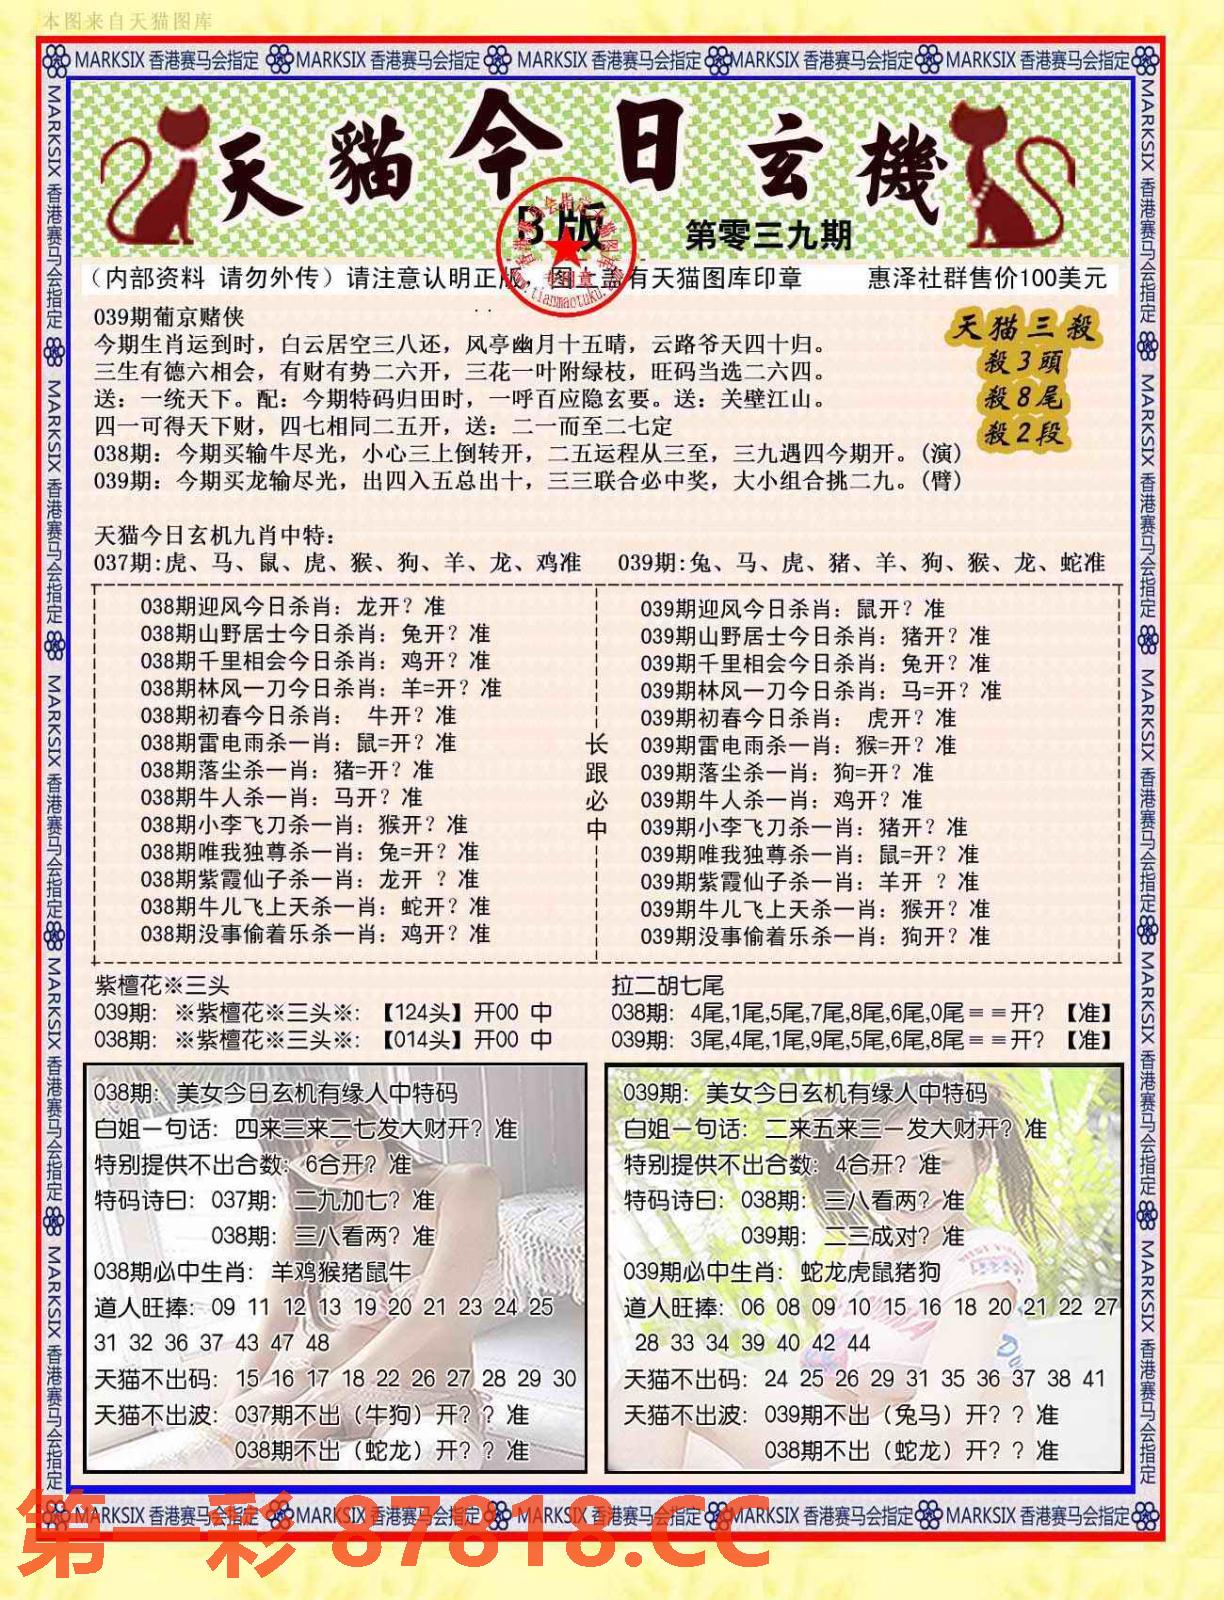 本图来自天猫图库
MARKSIX 香港赛马会指定 MARKSIX 香港赛马会指定 MARKSIX 香港赛马会指定 MARKSIX 香港赛马会指定 MARKSIX 香港赛马会指定
天貓今日玄機
B版
第零三九期
(内部资料 请勿外传)请注意认明正版 图上盖有天猫图库印章
惠泽社群售价100美元
039期葡京赌侠
今期生肖运到时，白云居空三八还，风亭幽月十五晴，云路爷天四十归。
三生有德六相会，有财有势二六开，三花一叶附绿枝，旺码当选二六四。
送：一统天下。配：今期特码归田时，一呼百应隐玄要。送：关壁江山。
四一可得天下财，四七相同二五开，送：二一而至二七定
038期：今期买输牛尽光，小心三上倒转开，二五运程从三至，三九遇四今期开。(演)
039期：今期买龙输尽光，出四入五总出十，三三联合必中奖，大小组合挑二九。(臂)
天猫三殺
殺3頭
殺8尾
殺2段
天猫今日玄机九肖中特：
037期:虎、马、鼠、虎、猴、狗、羊、龙、鸡准
039期:兔、马、虎、猪、羊、狗、猴、龙、蛇准
038期迎风今日杀肖：龙开？准
038期山野居士今日杀肖：兔开？准
038期千里相会今日杀肖：鸡开？准
038期林风一刀今日杀肖：羊=开？准
038期初春今日杀肖： 牛开？准
038期雷电雨杀一肖：鼠=开？准
038期落尘杀一肖：猪=开？准
038期牛人杀一肖：马开？准
038期小李飞刀杀一肖：猴开？准
038期唯我独尊杀一肖：兔=开？准
038期紫霞仙子杀一肖：龙开 ？准
038期牛儿飞上天杀一肖：蛇开？准
038期没事偷着乐杀一肖：鸡开？准
长跟必中
039期迎风今日杀肖：鼠开？准
039期山野居士今日杀肖：猪开？准
039期千里相会今日杀肖：兔开？准
039期林风一刀今日杀肖：马=开？准
039期初春今日杀肖： 虎开？准
039期雷电雨杀一肖：猴=开？准
039期落尘杀一肖：狗=开？准
039期牛人杀一肖：鸡开？准
039期小李飞刀杀一肖：猪开？准
039期唯我独尊杀一肖：鼠=开？准
039期紫霞仙子杀一肖：羊开 ？准
039期牛儿飞上天杀一肖：猴开？准
039期没事偷着乐杀一肖：狗开？准
紫檀花※三头
039期：※紫檀花※三头※：【124头】开00 中
038期：※紫檀花※三头※：【014头】开00 中
拉二胡七尾
038期：4尾,1尾,5尾,7尾,8尾,6尾,0尾＝＝开？【准】
039期：3尾,4尾,1尾,9尾,5尾,6尾,8尾＝＝开？【准】
038期：美女今日玄机有缘人中特码
白姐一句话：四来三来二七发大财开？准
特别提供不出合数：6合开？准
特码诗曰：037期：二九加七？准
038期：三八看两？准
038期必中生肖：羊鸡猴猪鼠牛
道人旺捧：09 11 12 13 19 20 21 23 24 25
31 32 36 37 43 47 48
天猫不出码：15 16 17 18 22 26 27 28 29 30
天猫不出波：037期不出（牛狗）开？？准
038期不出（蛇龙）开？？准
039期：美女今日玄机有缘人中特码
白姐一句话：二来五来三一发大财开？准
特别提供不出合数：4合开？准
特码诗曰：038期：三八看两？准
039期：二三成对？准
039期必中生肖：蛇龙虎鼠猪狗
道人旺捧：06 08 09 10 15 16 18 20 21 22 27
28 33 34 39 40 42 44
天猫不出码：24 25 26 29 31 35 36 37 38 41
天猫不出波：039期不出（兔马）开？？准
038期不出（蛇龙）开？？准
MARKSIX 香港赛马会指定 MARKSIX 香港赛马会指定 MARKSIX 香港赛马会指定 MARKSIX 香港赛马会指定 MARKSIX 香港赛马会指定
MARKSIX 香港赛马会指定 MARKSIX 香港赛马会指定 MARKSIX 香港赛马会指定 MARKSIX 香港赛马会指定 MARKSIX 香港赛马会指定
MARKSIX 香港赛马会指定 MARKSIX 香港赛马会指定 MARKSIX 香港赛马会指定 MARKSIX 香港赛马会指定 MARKSIX 香港赛马会指定
第一彩 87818.CC